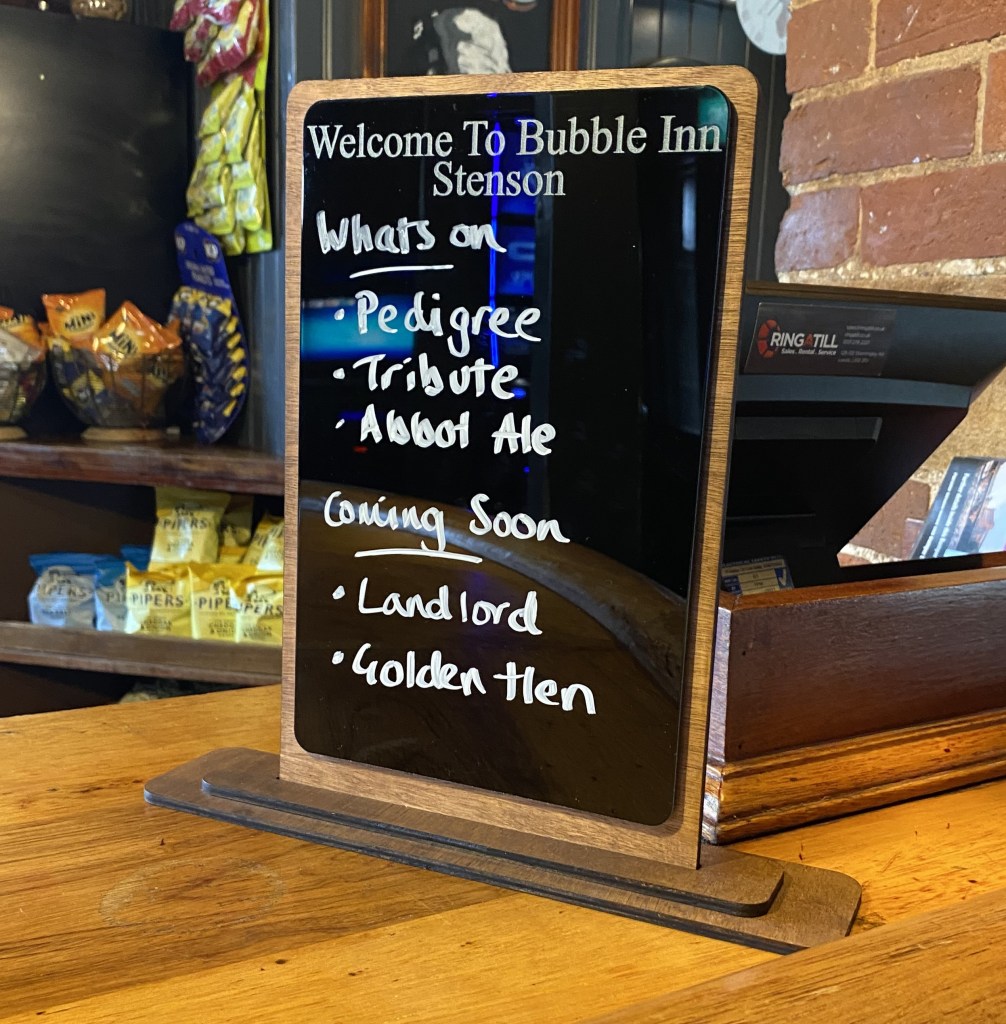 Welcome To Bubble Inn
Stenson
Whats on
• Pedigree
• Tribute
• Abbot Ale
Coming Soon
• Landlord
• Golden Hen
RINGATILL
Sales . Rental . Service
MINI
MINI
PIPERS
PIPERS
PIPERS
PIPERS